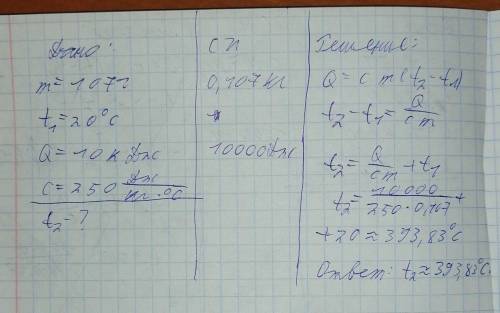 Дано:
m = 107г
t₁ = 20°C
Q = 10 кДж
c = 250 Дж/кг·°C
t₂ - ?
СИ
0,107 кг
10000 Дж
Решение:
Q = c m (t₂ - t₁)
t₂ - t₁ = Q/cm
t₂ = Q/cm + t₁
t₂ = 10000/250·0,107 +
+ 20 ≈ 393,83°C
Ответ: t₂ ≈ 393,83°C.